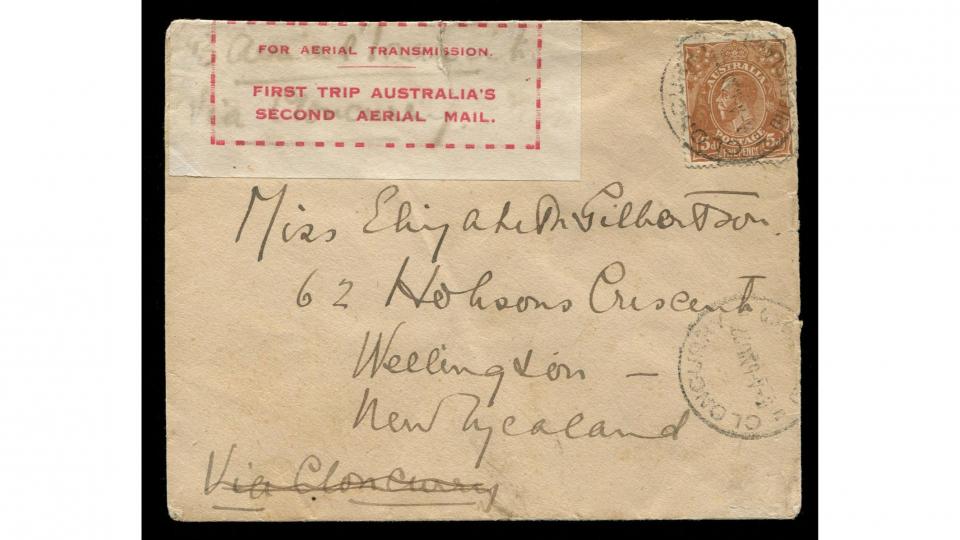 FOR AERIAL TRANSMISSION.
FIRST TRIP AUSTRALIA'S
SECOND AERIAL MAIL.
Via
AUSTRALIA
POSTAGE
5d FIVEPENCE 5d
Miss Elizabeth Gilbertson.
62 Hobsons Crescent
Wellington —
New Zealand
CLONCURRY
Via Cloncurry